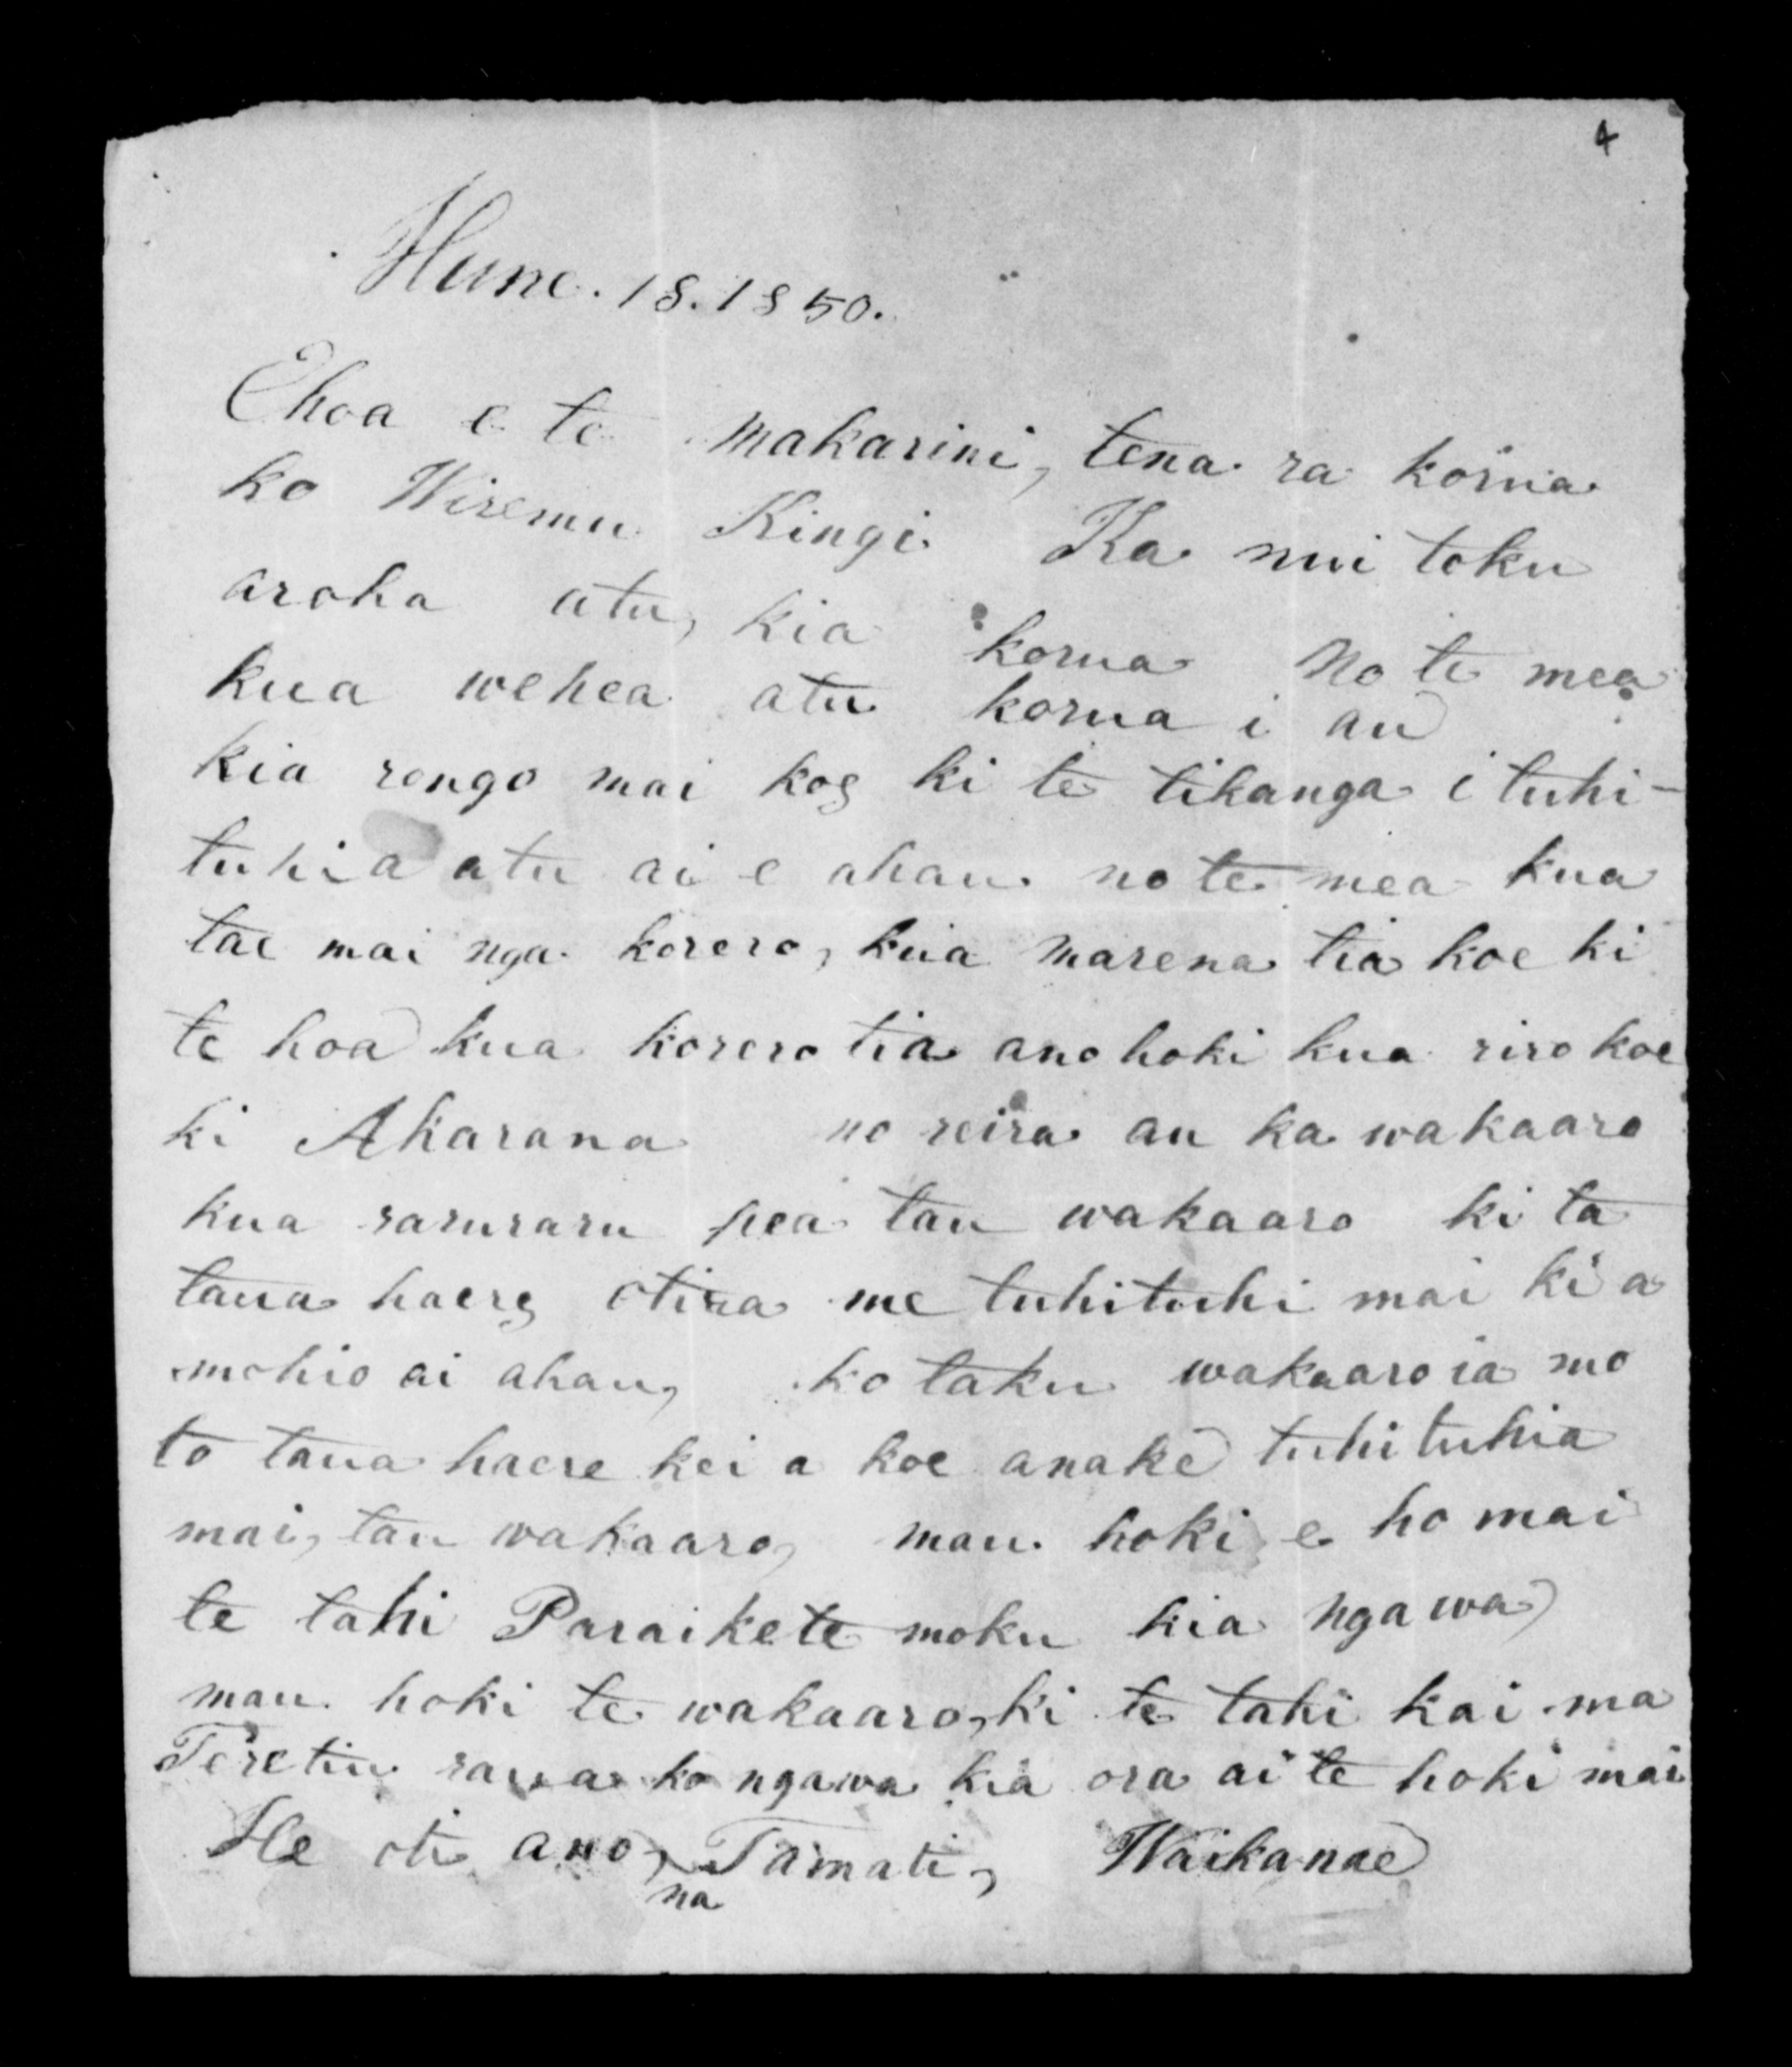 4
Hune. 18. 1850.
Ehoa e te Makarini, tena ra korua
ko Wiremu Kingi. Ka nui toku
aroha atu, kia korua No te mea
kua wehea atu korua i au
kia rongo mai koe ki te tikanga i tuhi-
tuhia atu ai e ahau. no te mea kua
tae mai nga korero, kua marena tia koe ki
te hoa kua korero tia ano hoki kua riro koe
ki Akarana no reira au ka wakaaro
kua raruraru pea tau wakaaro ki ta
taua haere otira me tuhituhi mai kia
mohio ai ahau, ko taku wakaaro ia mo
to taua haere kei a koe anake tuhituhia
mai, tau wakaaro, mau. hoki e ho mai
te tahi Paraikete moku kia ngawa
mau. hoki te wakaaro, ki te tahi kai ma
Teretiu rawa ko ngawa kia ora ai te hoki mai
He oti ano, na Tamati, Waikanae